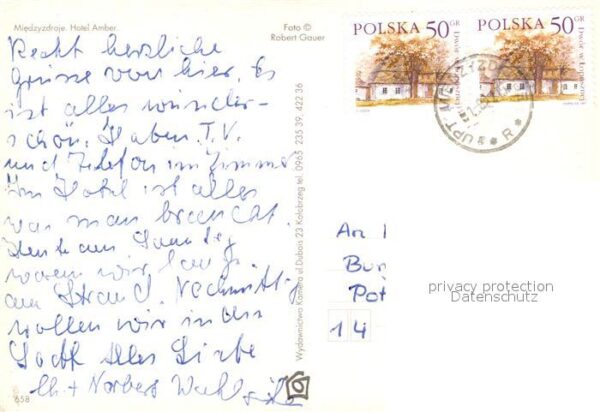 Międzyzdroje. Hotel Amber.
Foto ©
Robert Gauer
Recht herzliche
Grüsse von hier. Es
ist alles wunder-
schön. Haben T.V.
und Telefon im Zimmer
Im Hotel ist alles
was man braucht.
Heute am Sonntag
waren wir lange
am Strand. Nachmittag
wollen wir in die
Stadt Alles Liebe
+ Norbert
658
Wydawnictwo Kamera ul.Dubois 23 Kołobrzeg tel. 0965 235 39, 422 36
POLSKA 50 GR
POLSKA 50 GR
An
Bur
Pot
14
privacy protection
Datenschutz